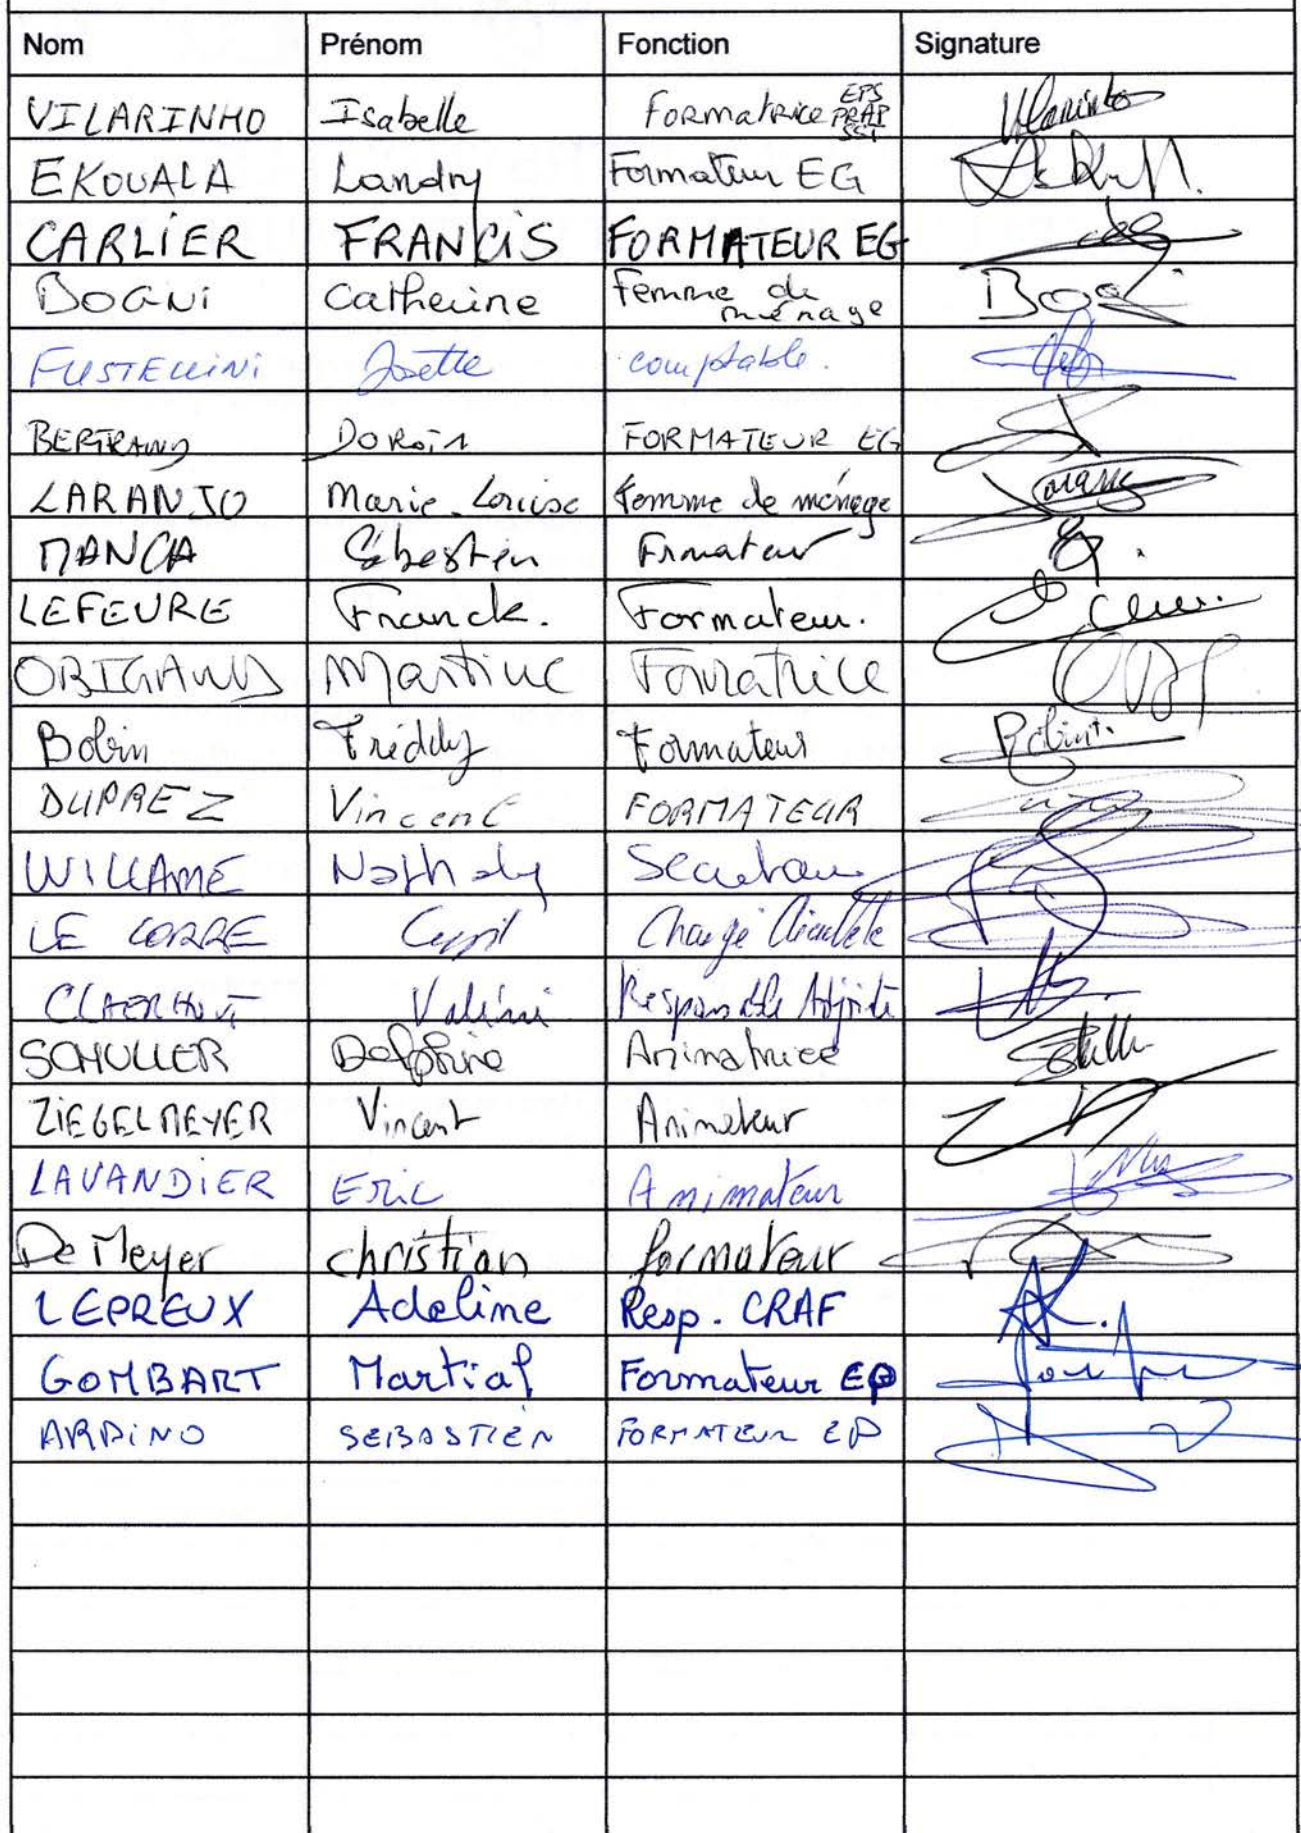 Nom Prénom Fonction Signature
VILARINHO Isabelle Formatrice EPS PRAP SST Vilarinho
EKOUALA Landry Formateur EG
CARLIER FRANCIS FORMATEUR EG
BOGNi Catherine Femme de ménage
FUSTELLINI Josette comptable.
BERTRAND FORMATEUR EG
LARANJO Marie-Louise femme de ménage
MANCA Sébastien Formateur
LEFEVRE Franck. Formateur.
Martine Formatrice
Bobin Freddy Formateur Bobin
DUPREZ Vincent FORMATEUR
WILLAME Nathaly
LE CORRE Cyril Chargé Clientèle
Responsable Adjointe
SCHULLER Delphine Animatrice
ZIEGELMEYER Vincent Animateur
LAVANDIER Eric Animateur
De Meyer christian formateur
LEPREUX Adeline Resp. CRAF
GOMBART Martial Formateur EP
ARDINO SEBASTIEN FORMATEUR EP